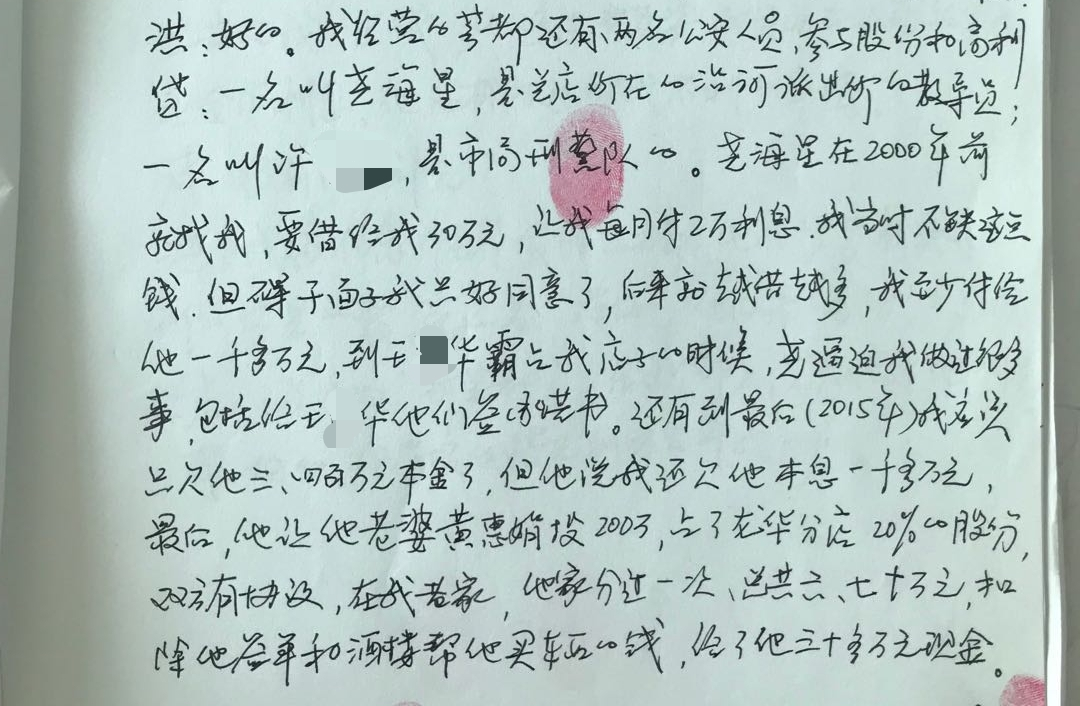 洪:好的。我经营的蓉都还有两名公安人员,参与股份和高利
贷:一名叫尧海星,是总店所在的沿河派出所的教导员;
一名叫许 ,是市局刑警队的。尧海星在2000年前
就找我,要借给我30万元,让我每月付2万利息.我当时不缺这点
钱.但碍于面子我只好同意了,后来就越借越多,我至少付给
他一千多万元,到王 华霸占我店子的时候,尧逼迫我做过很多
事,包括给王 华他们签 书。还有到最后(2015年)我应该
只欠他三、四百万元本金了,但他说我还欠他本息一千多万元,
最后,他让他老婆黄惠娟投200万,占了龙华分店20%的股份,
双方有协议,在我老家,他家分过一次、总共六、七十万元,扣
除他签单和酒楼帮他买东西的钱,给了他三十多万元现金。